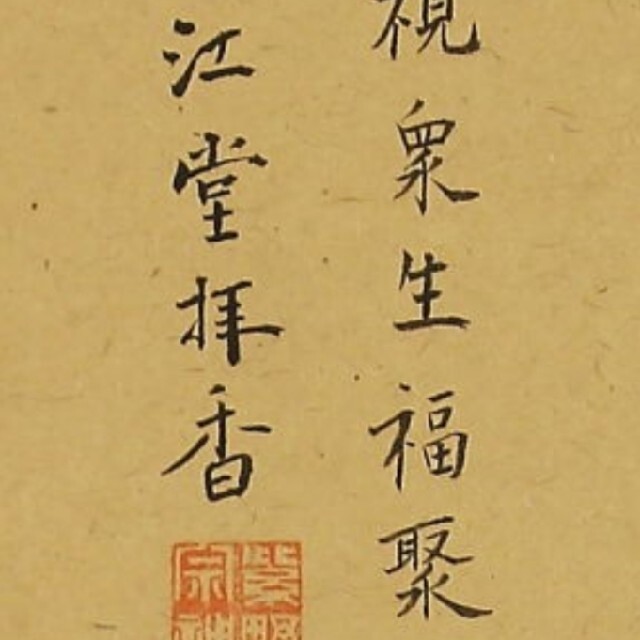 視眾生福聚
江堂拜香